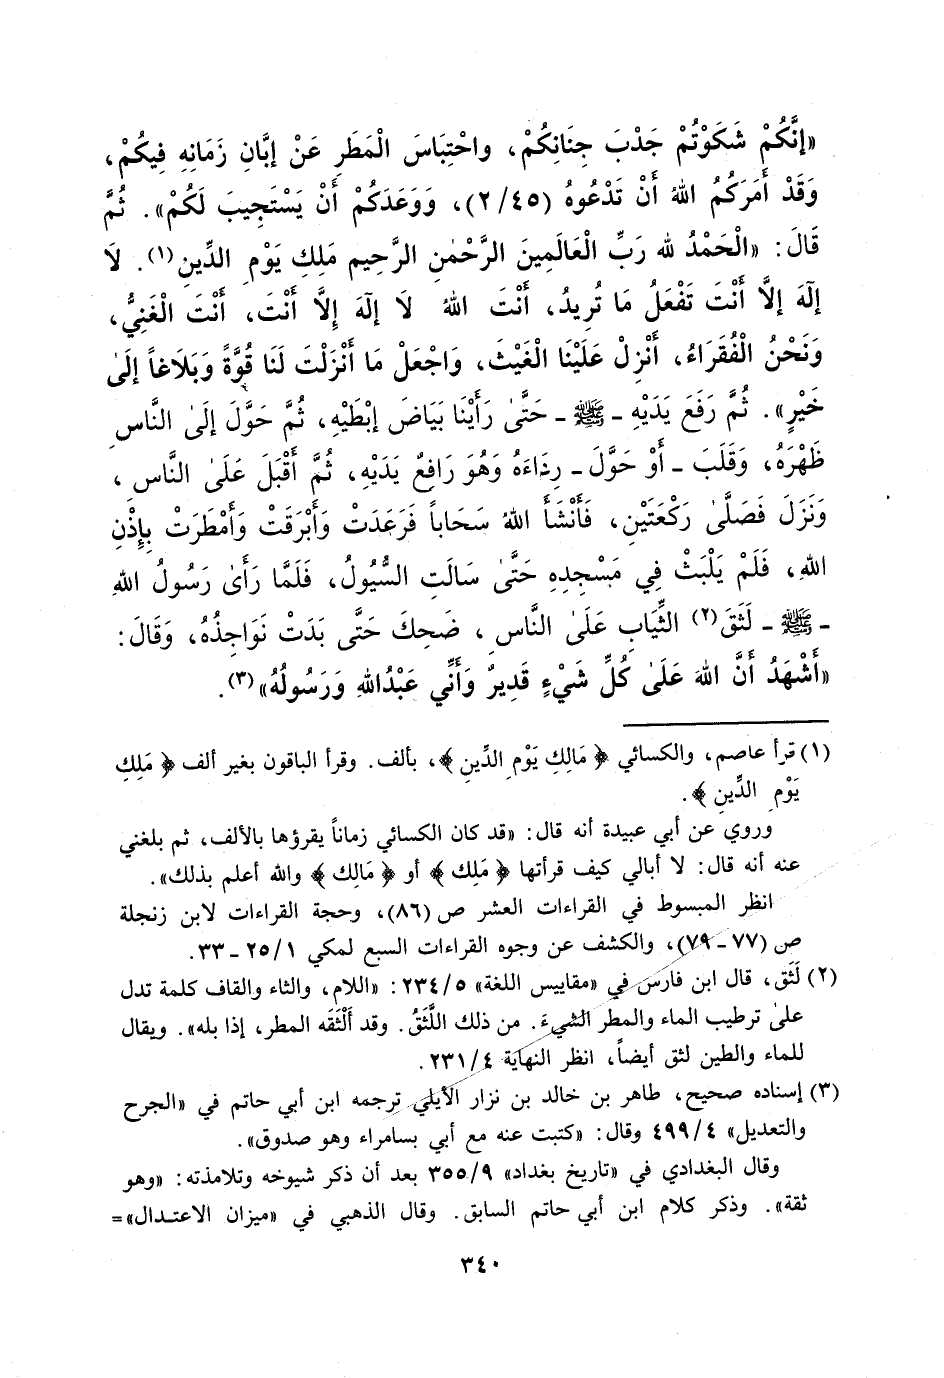 «إِنَّكُمْ شَكَوْتُمْ جَدْبَ جِنَانِكُمْ، واحْتِبَاسَ الْمَطَرِ عَنْ إِبَّانِ زَمَانِهِ فِيكُمْ،
وَقَدْ أَمَرَكُمُ اللهُ أَنْ تَدْعُوهُ (٢/٤٥)، وَوَعَدَكُمْ أَنْ يَسْتَجِيبَ لَكُمْ». ثُمَّ
قَالَ: «الْحَمْدُ لله رَبِّ الْعَالَمِينَ الرَّحْمٰنِ الرَّحِيمِ مَلِكِ يَوْمِ الدِّينِ(١). لَا
إِلَهَ إِلَّا أَنْتَ تَفْعَلُ مَا تُرِيدُ، أَنْتَ اللهُ لَا إِلَهَ إِلَّا أَنْتَ، أَنْتَ الْغَنِيُّ،
وَنَحْنُ الْفُقَرَاءُ، أَنْزِلْ عَلَيْنَا الْغَيْثَ، وَاجْعَلْ مَا أَنْزَلْتَ لَنَا قُوَّةً وَبَلَاغاً إِلَىٰ
خَيْرٍ». ثُمَّ رَفَعَ يَدَيْهِ - ﷺ - حَتَّىٰ رَأَيْنَا بَيَاضَ إِبْطَيْهِ، ثُمَّ حَوَّلَ إِلَىٰ النَّاسِ
ظَهْرَهُ، وَقَلَبَ - أَوْ حَوَّلَ - رِدَاءَهُ وَهُوَ رَافِعٌ يَدَيْهِ، ثُمَّ أَقْبَلَ عَلَىٰ النَّاسِ،
وَنَزَلَ فَصَلَّىٰ رَكْعَتَيْنِ، فَأَنْشَأَ اللهُ سَحَاباً فَرَعَدَتْ وَأَبْرَقَتْ وَأَمْطَرَتْ بِإِذْنِ
اللهِ، فَلَمْ يَلْبَثْ فِي مَسْجِدِهِ حَتَّىٰ سَالَتِ السُّيُولُ، فَلَمَّا رَأَىٰ رَسُولُ اللهِ
- ﷺ - لَثَقَ(٢) الثِّيَابِ عَلَىٰ النَّاسِ، ضَحِكَ حَتَّى بَدَتْ نَوَاجِذُهُ، وَقَالَ:
«أَشْهَدُ أَنَّ اللهَ عَلَىٰ كُلِّ شَيْءٍ قَدِيرٌ وَأَنِّي عَبْدُاللهِ وَرَسُولُهُ»(٣).
(١) قرأ عاصم، والكسائي ﴿مَالِكِ يَوْمِ الدِّينِ﴾، بألف. وقرأ الباقون بغير ألف ﴿مَلِكِ
يَوْمِ الدِّينِ﴾.
وروي عن أبي عبيدة أنه قال: «قد كان الكسائي زماناً يقرؤها بالألف، ثم بلغني
عنه أنه قال: لا أبالي كيف قرأتها ﴿مَلِك﴾ أو ﴿مَالِك﴾ والله أعلم بذلك».
انظر المبسوط في القراءات العشر ص (٨٦)، وحجة القراءات لابن زنجلة
ص (٧٧ - ٧٩)، والكشف عن وجوه القراءات السبع لمكي ٢٥/١ - ٣٣.
(٢) لَثَق، قال ابن فارس في «مقاييس اللغة» ٢٣٤/٥: «اللام، والثاء والقاف كلمة تدل
علىٰ ترطيب الماء والمطر الشيءَ. من ذلك اللَّثَقُ. وقد أَلْثَقَه المطر، إذا بله». ويقال
للماء والطين لثق أيضاً، انظر النهاية ٢٣١/٤.
(٣) إسناده صحيح، طاهر بن خالد بن نزار الأيلي ترجمه ابن أبي حاتم في «الجرح
والتعديل» ٤٩٩/٤ وقال: «كتبت عنه مع أبي بسامراء وهو صدوق».
وقال البغدادي في «تاريخ بغداد» ٣٥٥/٩ بعد أن ذكر شيوخه وتلامذته: «وهو
ثقة». وذكر كلام ابن أبي حاتم السابق. وقال الذهبي في «ميزان الاعتدال» =
٣٤٠